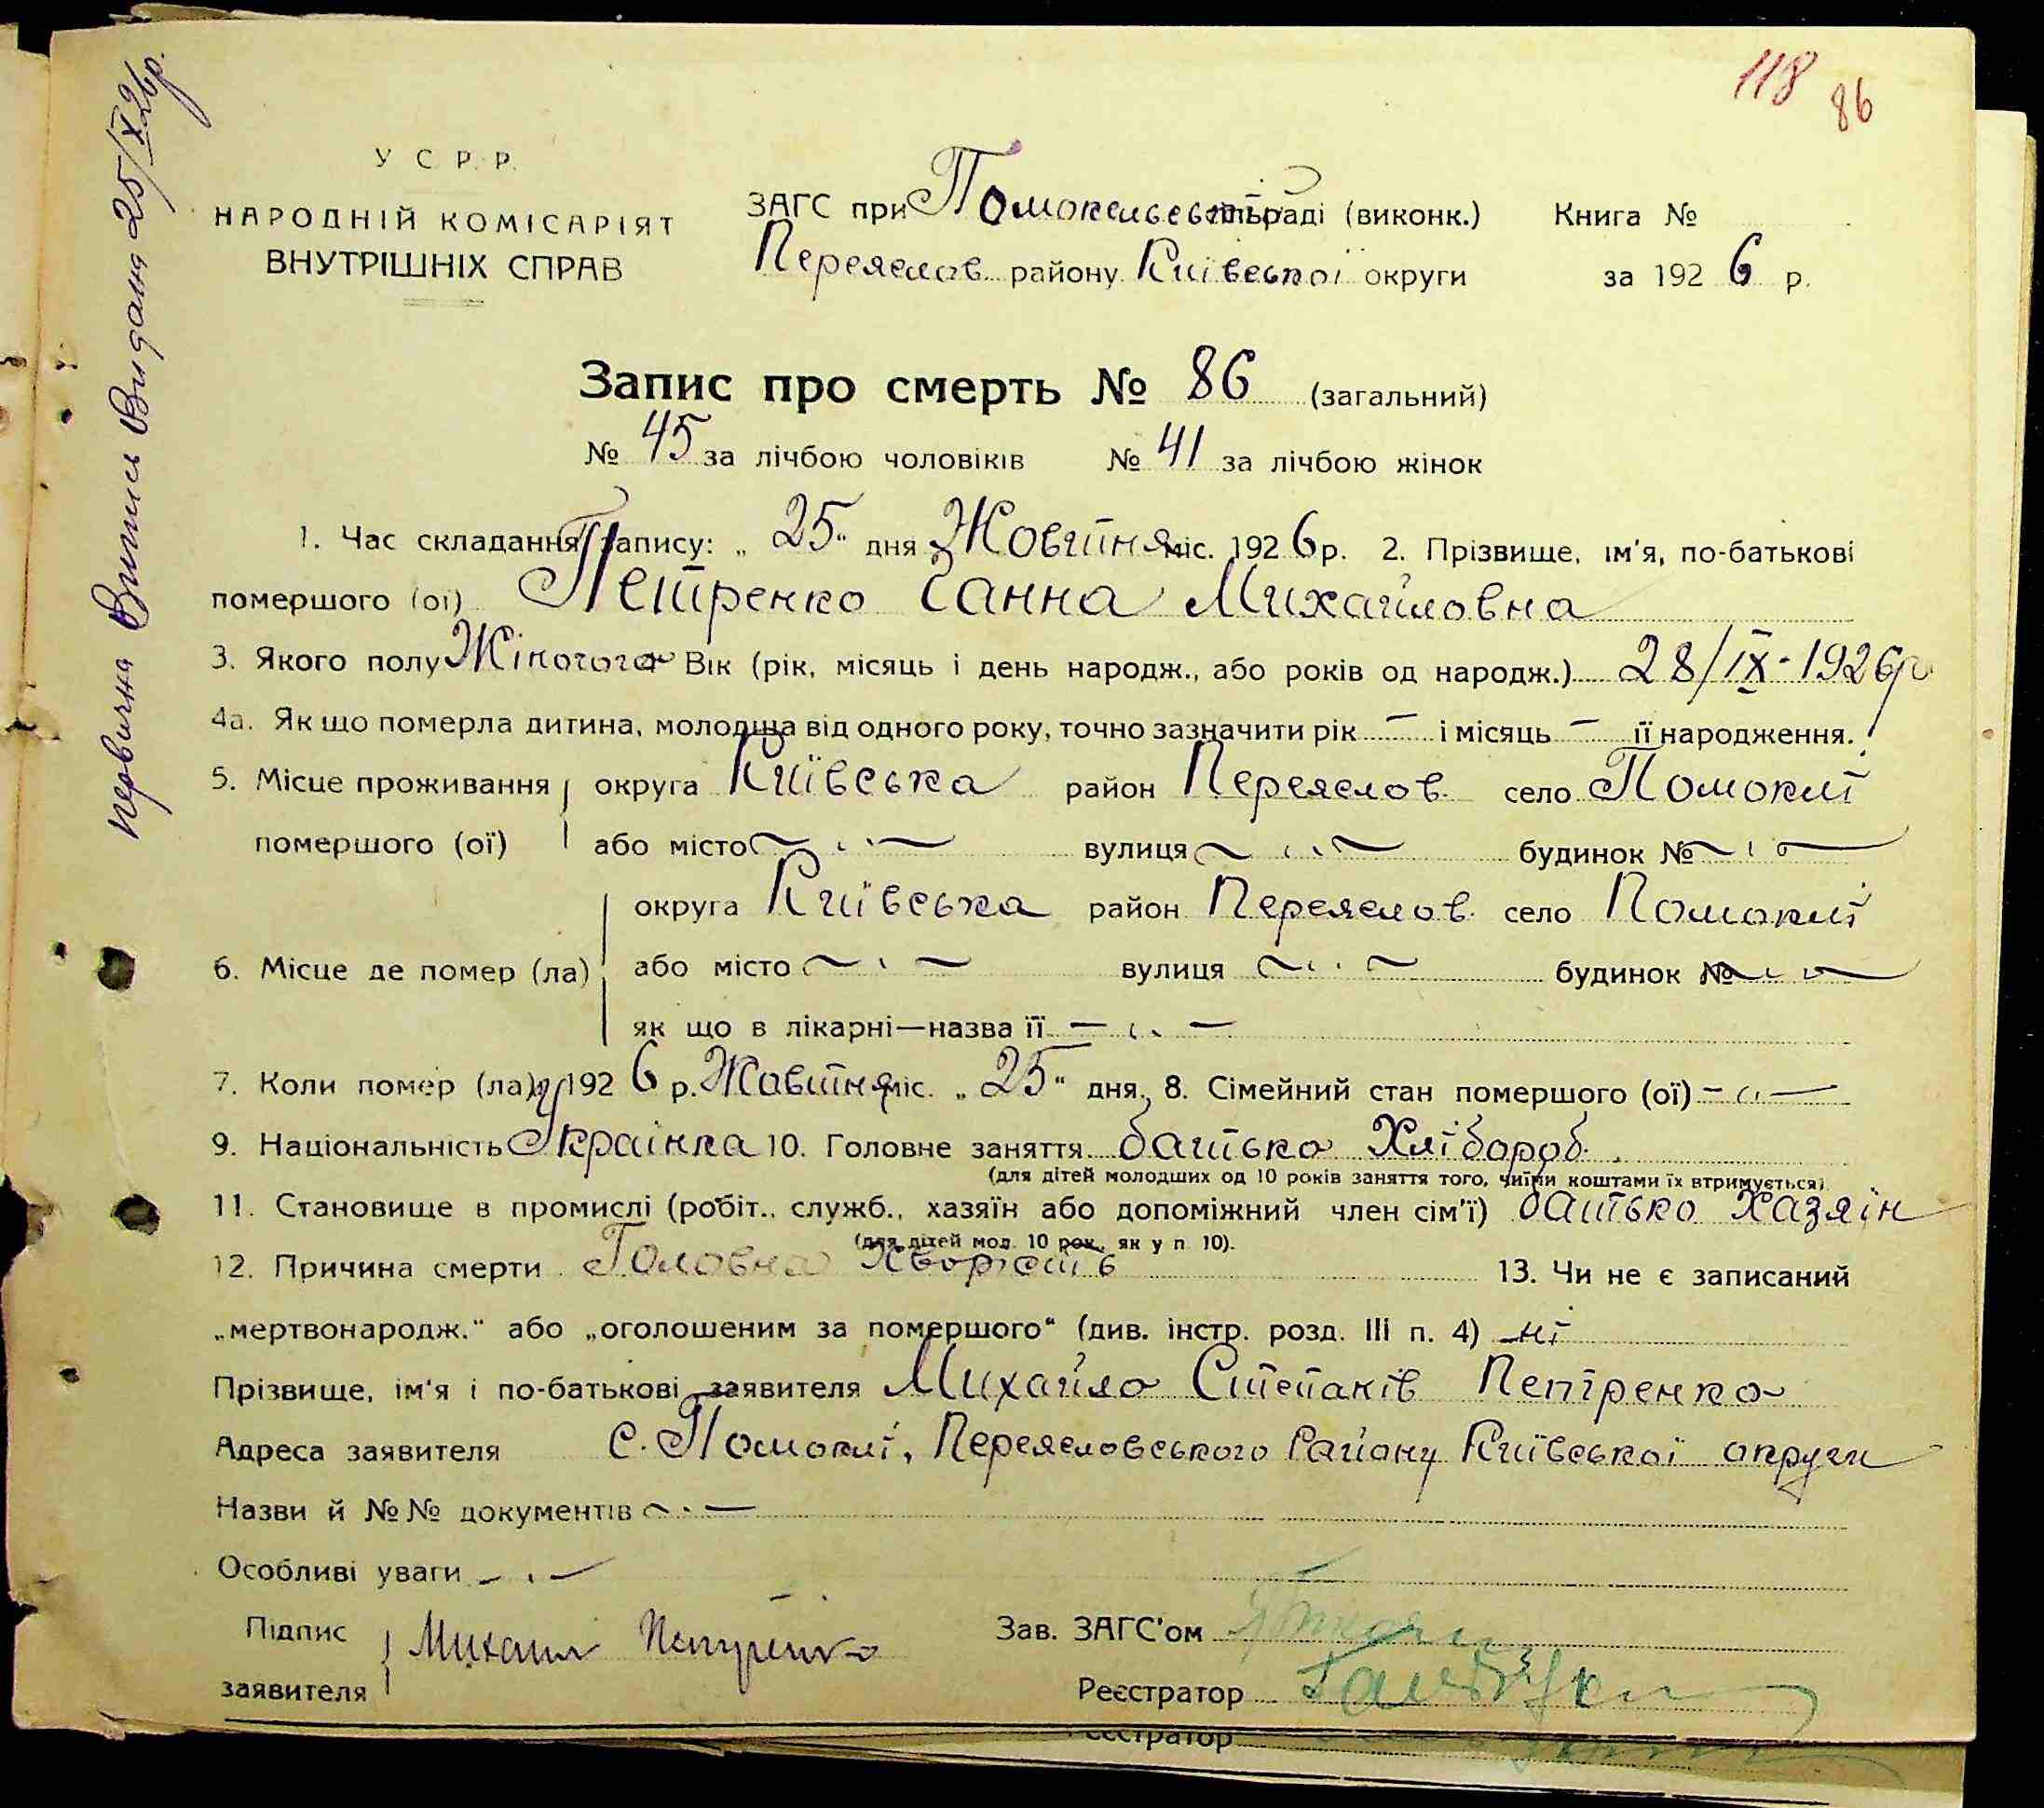 118
86
У С Р. Р.
НАРОДНІЙ КОМІСАРІЯТ
ВНУТРІШНІХ СПРАВ
ЗАГС при Помокельсь сільраді (виконк.) Книга №
Переяслов району Київської округи за 1926 р.
Первична Випись Видана 25/IX 26 р.
Запис про смерть № 86 (загальний)
№ 45 за лічбою чоловіків № 41 за лічбою жінок
1. Час складання запису: „25“ дня Жовтня міс. 1926 р. 2. Прізвище, ім'я, по-батькові
помершого (ої) Петренко Ганна Михайловна
3. Якого полу Жіночого Вік (рік, місяць і день народж., або років од народж.) 28/IX-1926р
4а. Як що померла дитина, молодша від одного року, точно зазначити рік — і місяць — її народження.
5. Місце проживання округа Київська район Переяслов. село Помоклі
помершого (ої) або місто вулиця будинок №
округа Київська район Переяслов. село Помоклі
6. Місце де помер (ла) або місто вулиця будинок №
як що в лікарні—назва її
7. Коли помер (ла) у 1926 р. Жовтня міс. „25“ дня. 8. Сімейний стан помершого (ої)
9. Національність Українка 10. Головне заняття батько Хлібороб.
(для дітей молодших од 10 років заняття того, чиїми коштами їх втримується)
11. Становище в промислі (робіт., служб., хазяїн або допоміжний член сім'ї) батько Хазяїн
(для дітей мол. 10 рок. як у п 10).
12. Причина смерти Головна Хворість 13. Чи не є записаний
„мертвонародж.“ або „оголошеним за помершого“ (див. інстр. розд. III п. 4) ні
Прізвище, ім'я і по-батькові заявителя Михайло Степанів Петренко
Адреса заявителя с. Помоклі, Переясловського Району Київської округи
Назви й №№ документів
Особливі уваги
Підпис Михаил Петренко Зав. ЗАГС'ом
заявителя Реєстратор
еєстратор